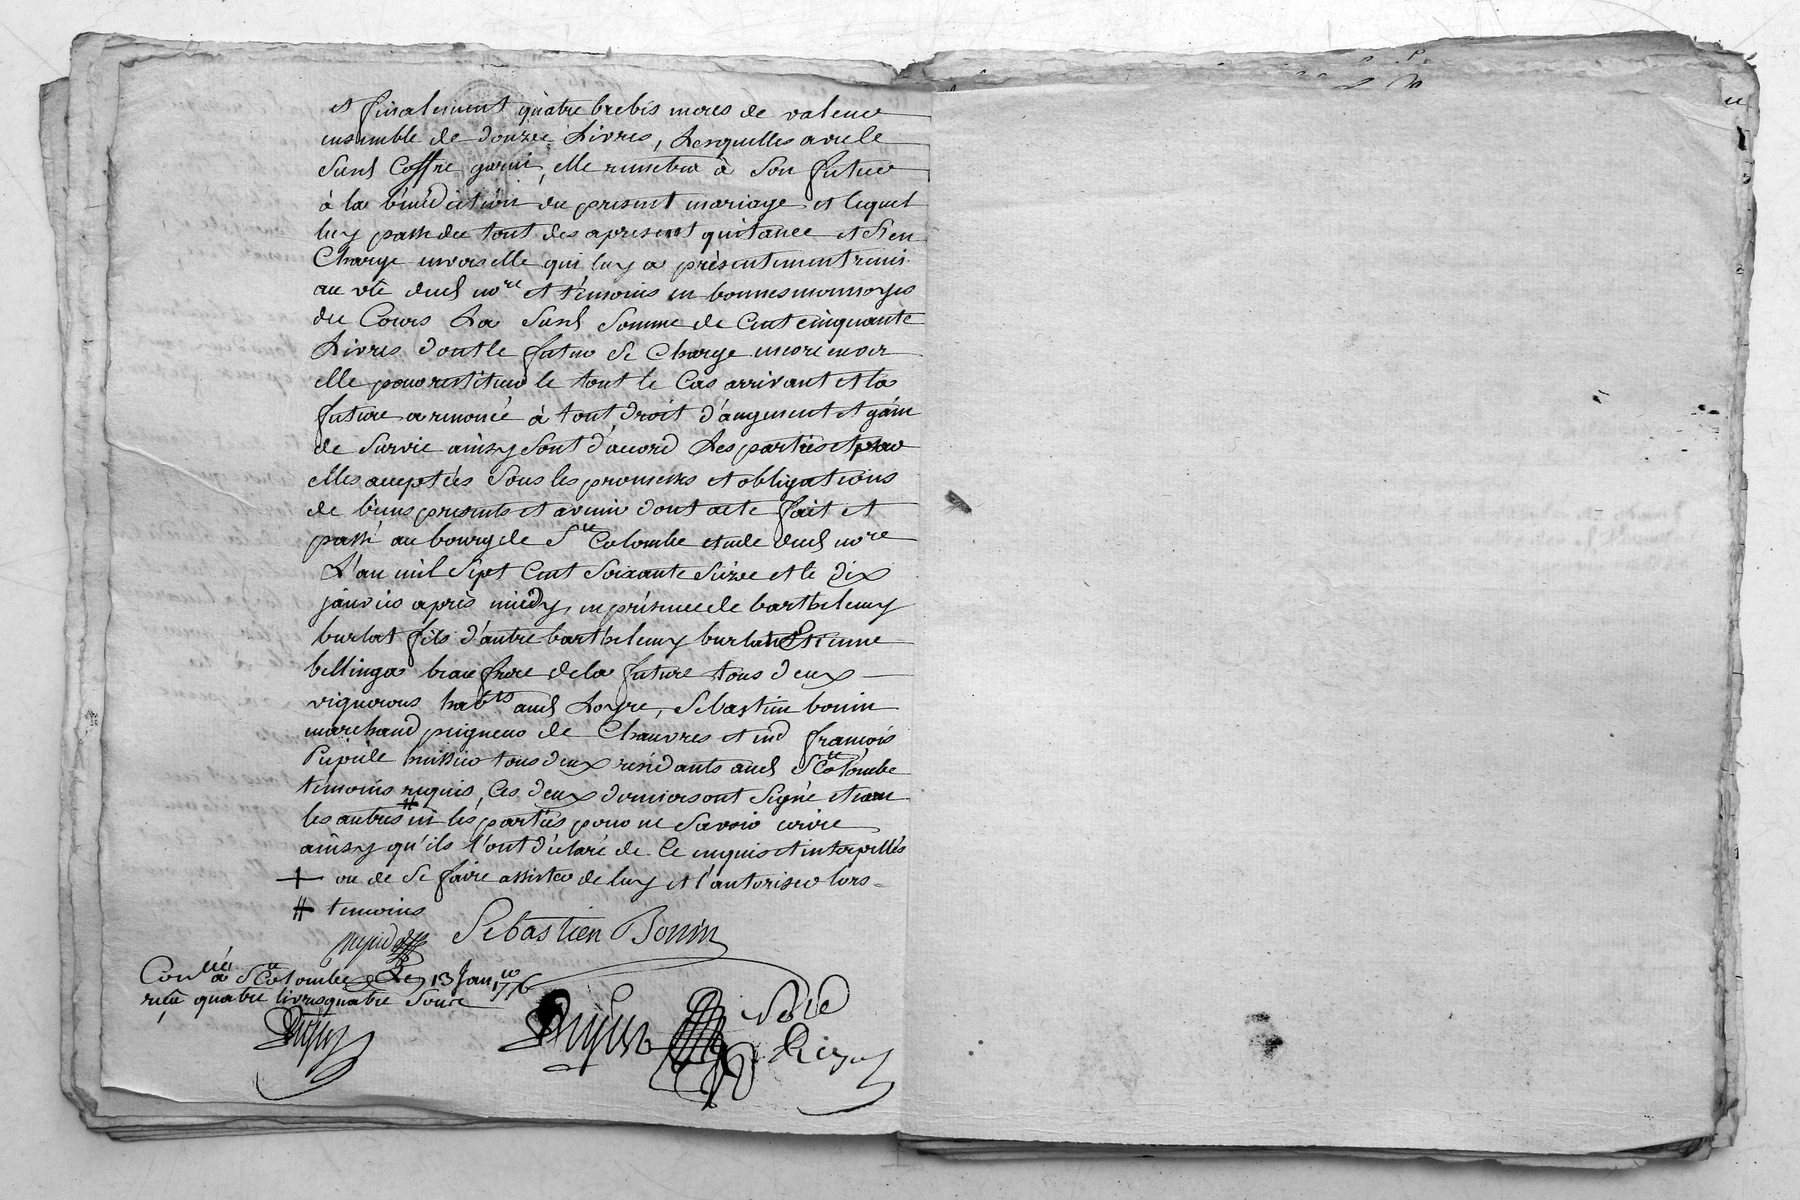 et finalement quatre brebis meres de valeur
ensemble de douze Livres, Lesquelles avec le
Susd Coffre garni, elle remettra à Son futur
à la bénédiction du present mariage et lequel
luy passe du tout des apresent quitance et S'en
Charge envers elle qui luy a présentement remis
au vû dud no.re et témoins en bonnes monnoyes
du Cours La Susd Somme de Cent cinquante
Livres dont le futur Se Charge encore envers
elle pour restituer le tout le Cas arrivant et la
future a renoncé à tout droit d'augment et gain
de Survie ainsy Sont d'accord Les parties et pour
elles acceptées Sous les promesses et obligations
de biens presents et avenir dont acte fait et
passé au bourg de S.te Colombe etude dud no.re
L'an mil Sept Cent Soixante Seize et le dix
janvier après midy, en présence de barthelemy
burlat fils d'autre barthelemy burlat Etienne
bellinga beau frere de la future tous deux
vignerons hab.ts aud Loyre, Sebastien bonin
marchand peigneur de Chanvres et ind françois
Pupide huissier tous deux residants aud S.te Colombe
témoins requis, Ces deux derniers ont Signé et non
les autres # ni les parties pour ne Savoir ecrire
ainsy qu'ils l'ont déclaré de Ce enquis et interpellés
+ ou de Se faire assister de luy et l'autoriser lors
# temoins
Sebastien Bonin
Con.llé à S.te Colombe Le 13 Jan.er 1776
reçu quatre livres quatre Sous